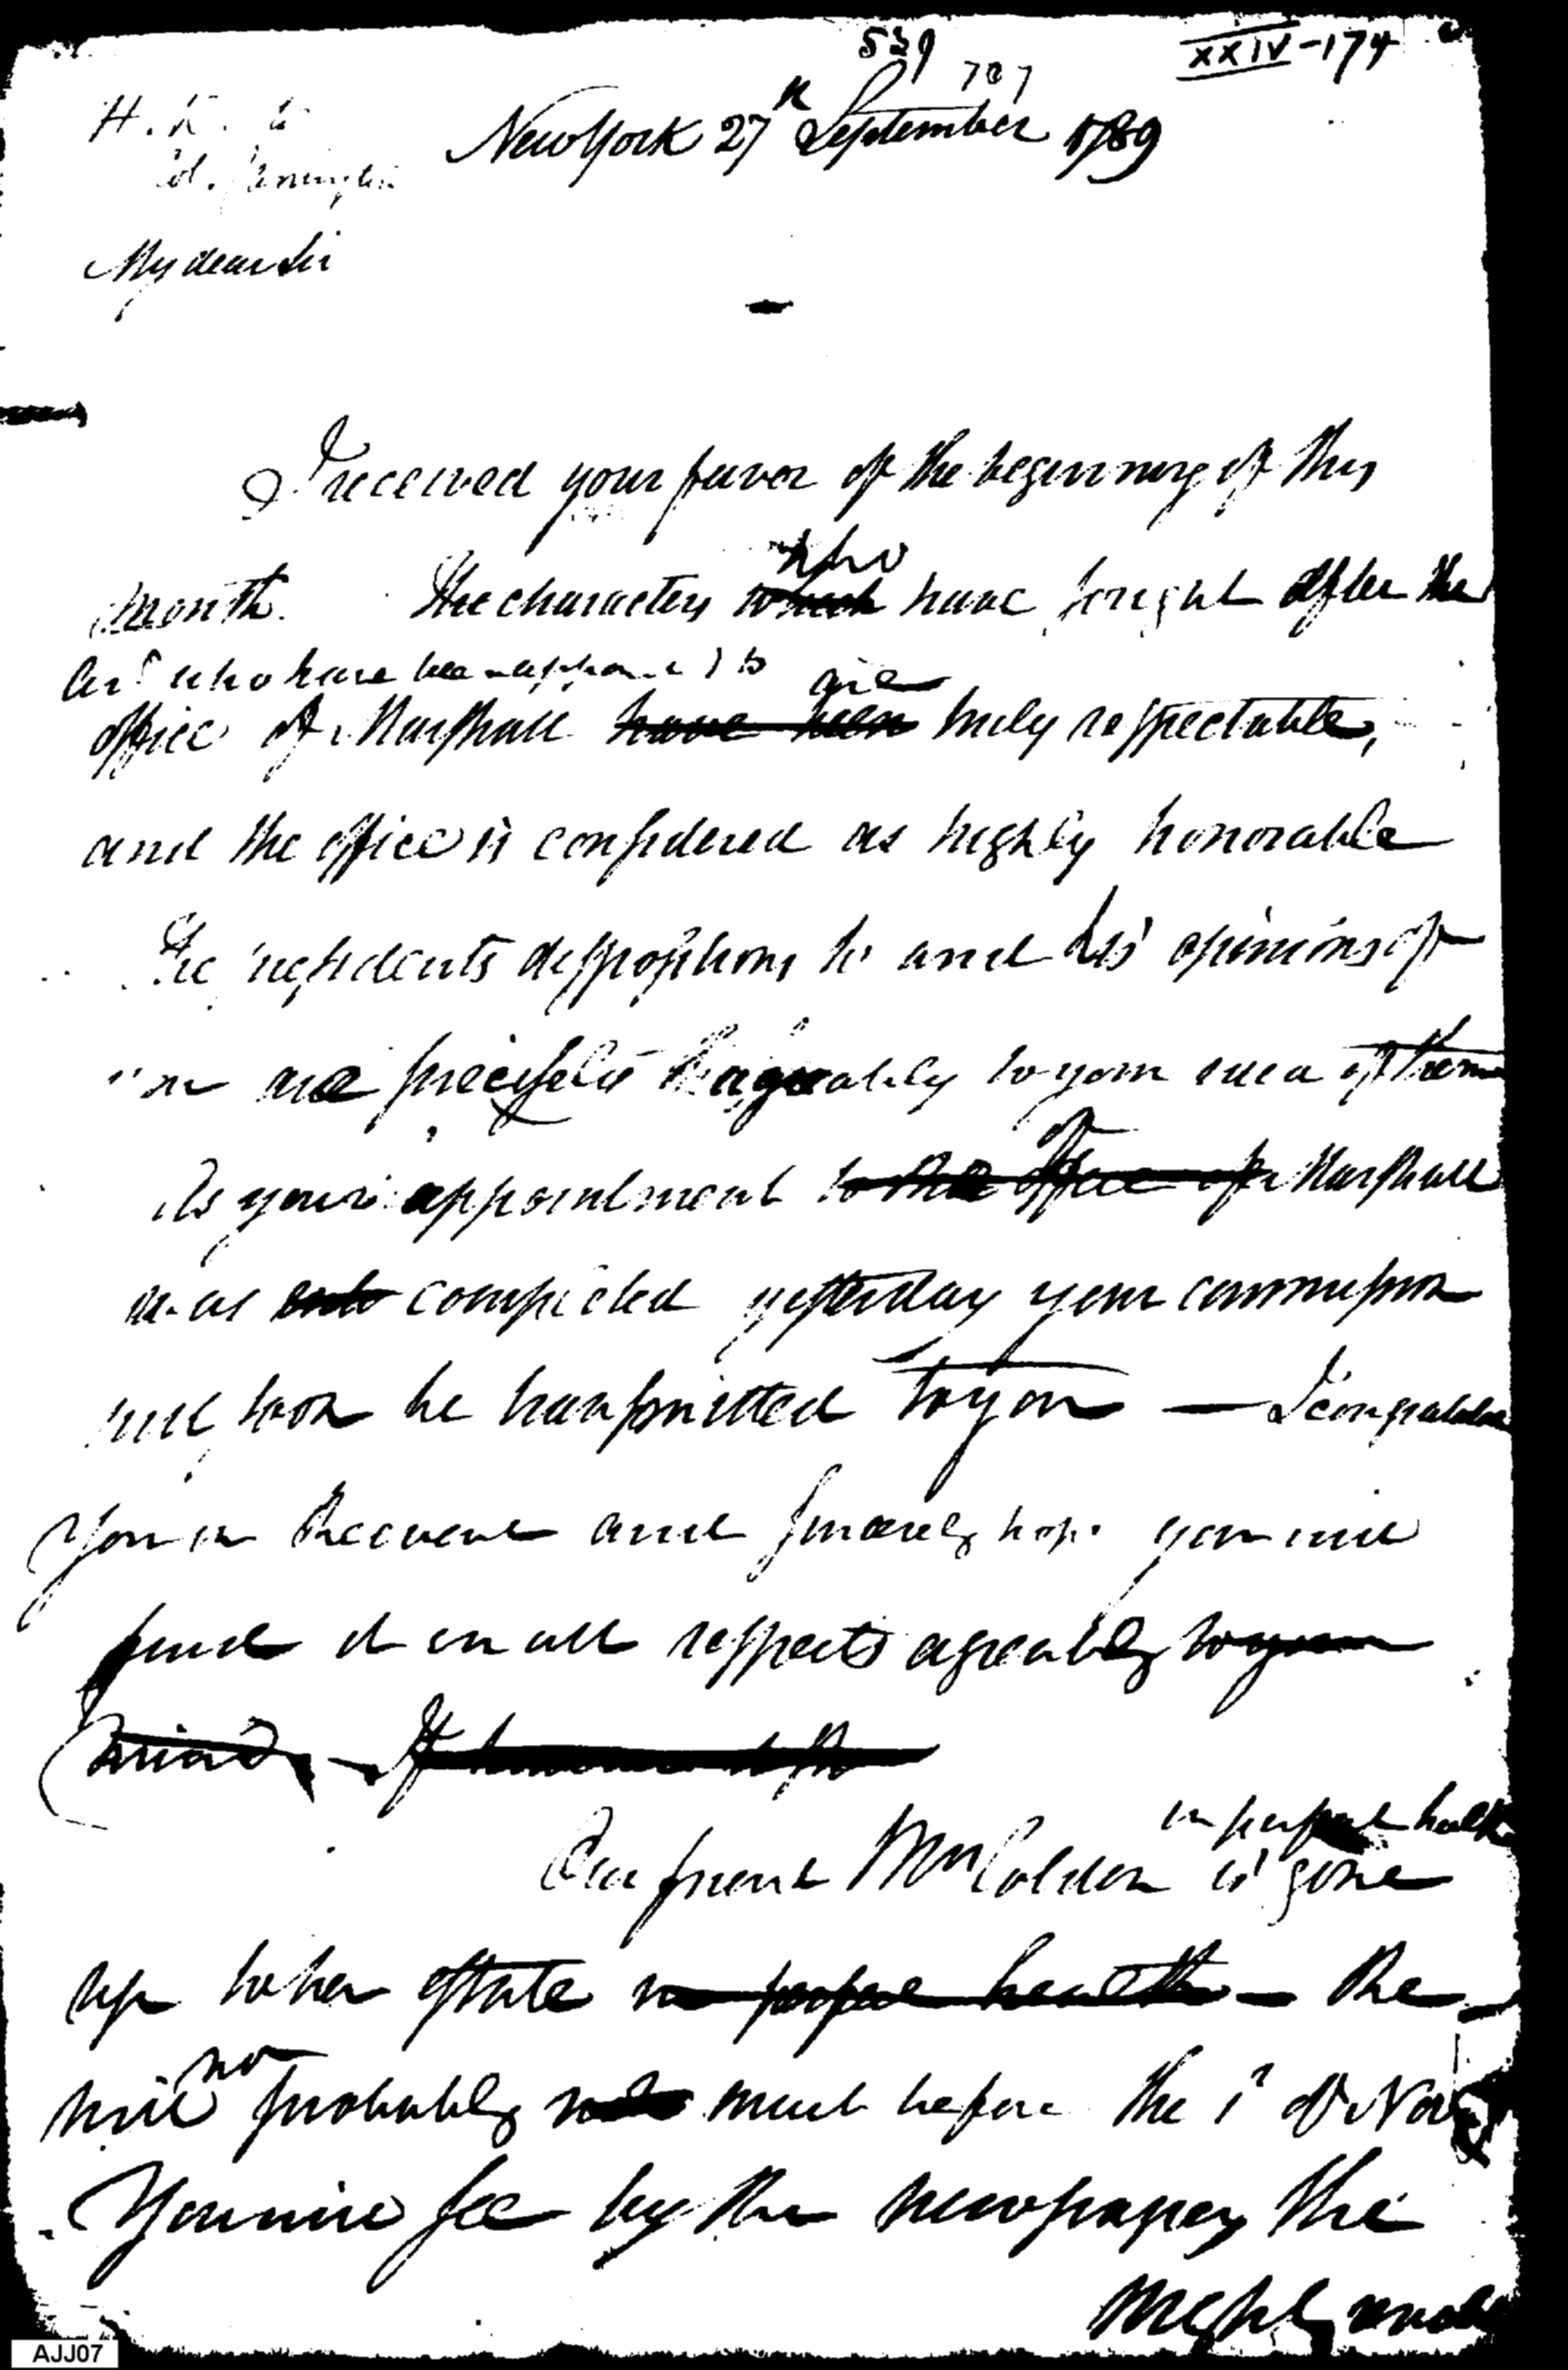 539
707
XXIV-174
H. K. to
Col. Carrington
New York 27th September 1789
My dear Sir
I received your favor of the beginning of this
month. The characters which who have sought after the
and who have been appointed to are
office of Marshall have been truly respectable,
and the office is considered as highly honorable
The presidents dispositions to and his opinions of
you are precisely agreably to your idea of them
As your appointment to the office of of Marshall
was completed yesterday your commission
will soon be transmitted to you — I congratulate
You on the event and sincerely hope you will
find it in all respects agreably to your
mind — If
in perfect health
Our friend Mrs Colden is gone
up to her estate in perfect health — She
no
will probably not much before the 1st of Nov
You will see by the newspapers the